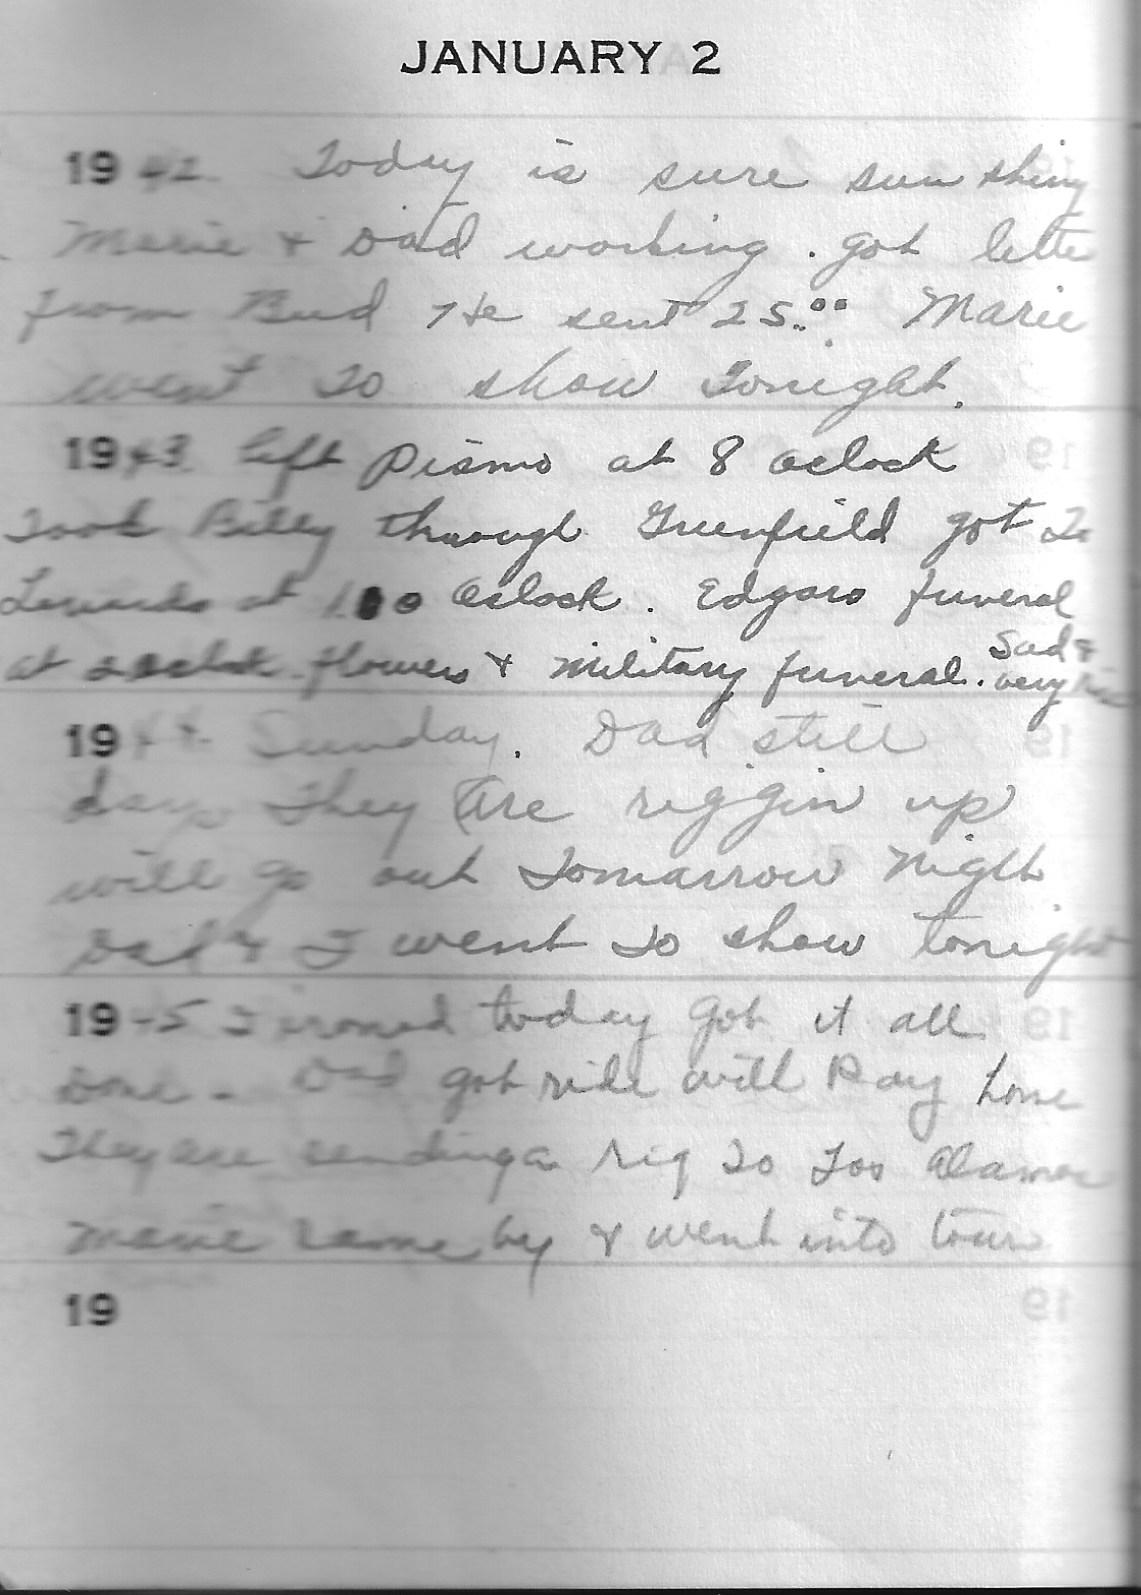 JANUARY 2
1942 Today is sure sun shiny
Marie & Dad working. got lette
from Bud He sent 25.00 Marie
went to show tonight.
1943 left Pismo at 8 oclock
Took Billy through Greenfield got to
at 1.00 Oclock. Edgars funeral
at 2 oclock. flowers & Military funeral. Sad &
very
1944 Sunday. Dad still
days They are riggin up
will go out Tomarrow Night
Dad & I went to show tonight
1945 I ironed today Got it all
done. Dad got ride with Ray home
They are sending a rig to Los Alamos
Marie came by & went into town
19